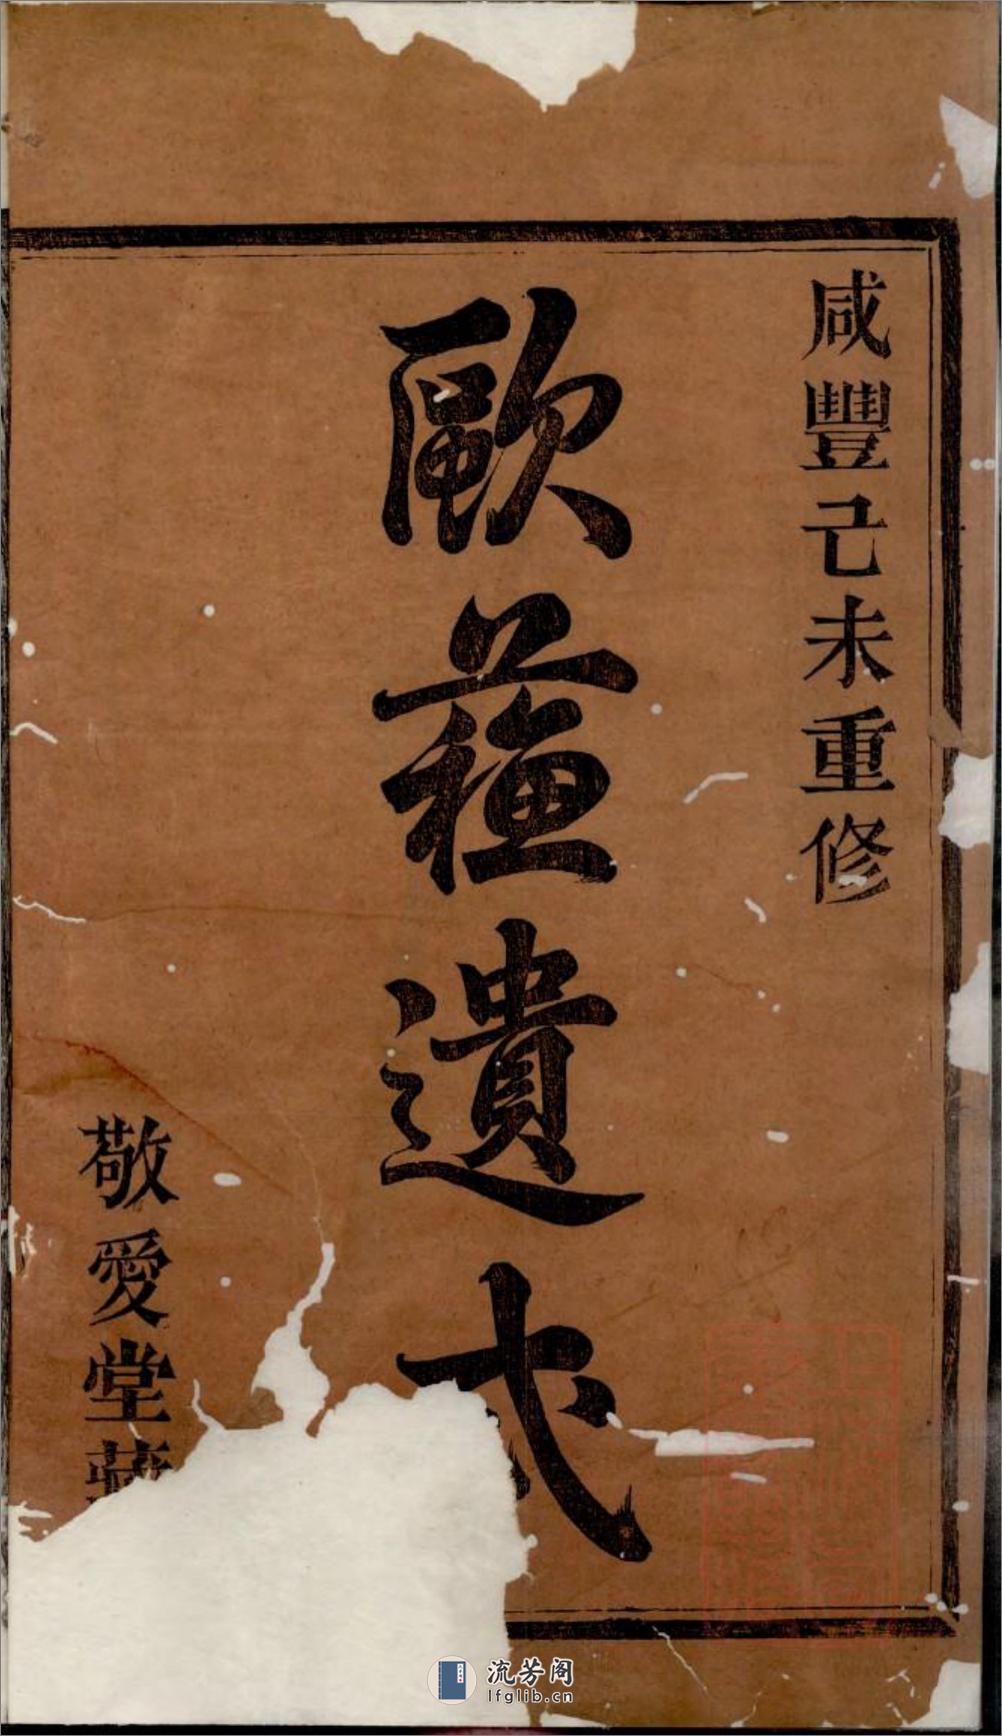 咸豐己未重修
歐蘓遺式
敬愛堂藏
流芳阁
lfglib.cn